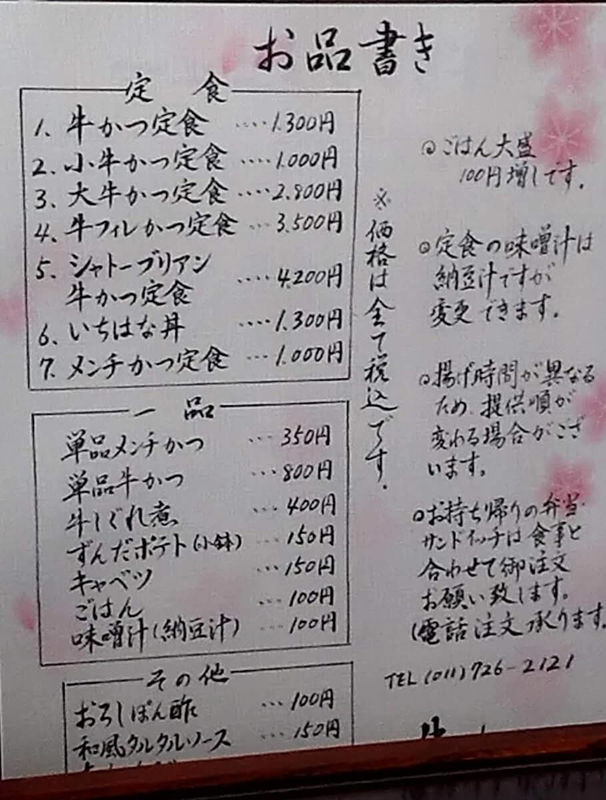 お品書き
定食
1. 牛かつ定食 ····1.300円
2. 小牛かつ定食 ····1.000円
3. 大牛かつ定食 ····2.800円
4. 牛フィレかつ定食 ···3.500円
5. シャトーブリアン
牛かつ定食 ····4.200円
6. いちはな丼 ····1.300円
7. メンチかつ定食 ····1.000円
一品
単品メンチかつ ···350円
単品牛かつ ···800円
牛しぐれ煮 ···400円
ずんだポテト(小鉢) ···150円
キャベツ ···150円
ごはん ···100円
味噌汁(納豆汁) ···100円
その他
おろしぽん酢 ···100円
和風タルタルソース ···150円
※価格は全て税込です.
◎ごはん大盛
100円増しです。
◎定食の味噌汁は
納豆汁ですが
変更できます。
◎揚げ時間が異なる
ため、提供順が
変わる場合がござ
います。
◎お持ち帰りの弁当・
サンドイッチは食事と
合わせて御注文
お願い致します。
(電話注文承ります
TEL(011)726-2121